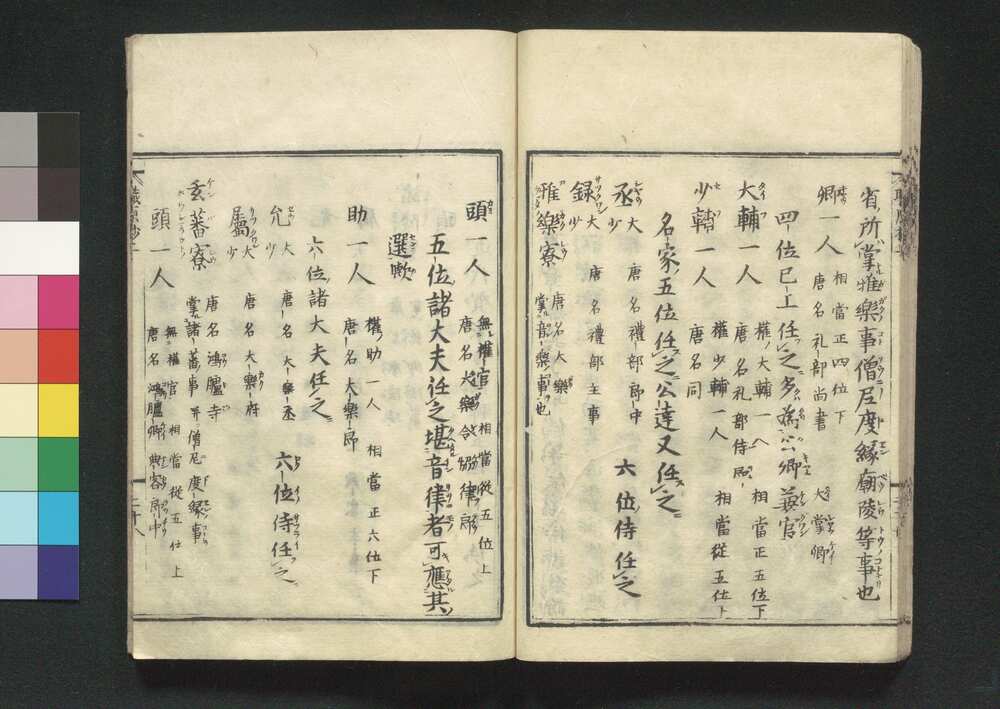 省所掌雅樂事僧尼度縁廟陵等事也
卿一人 相當正四位下 唐名礼部尚書 大掌卿
四位已上任之多為公卿兼官
大輔一人 權大輔一人 相當正五位下 唐名礼部侍郎
少輔一人 權少輔一人 相當從五位下 唐名同
名家五位任之公達又任之
丞 大少 唐名禮部郎中 六位侍任之
録 大少 唐名禮部主事
雅樂寮 唐名大樂 掌音樂事也
頭一人 無權官 相當從五位上 唐名大樂令 協律郎
五位諸大夫任之堪音律者可應其
選歟
助一人 權助一人 相當正六位下 唐名大樂郎
六位諸大夫任之
允 大少 唐名大樂丞 六位侍任之
属 大少 唐名大樂府
玄蕃寮 唐名鴻臚寺 掌諸蕃事并僧尼度縁事
頭一人 無權官 相當從五位上 唐名鴻臚卿 典客郎中